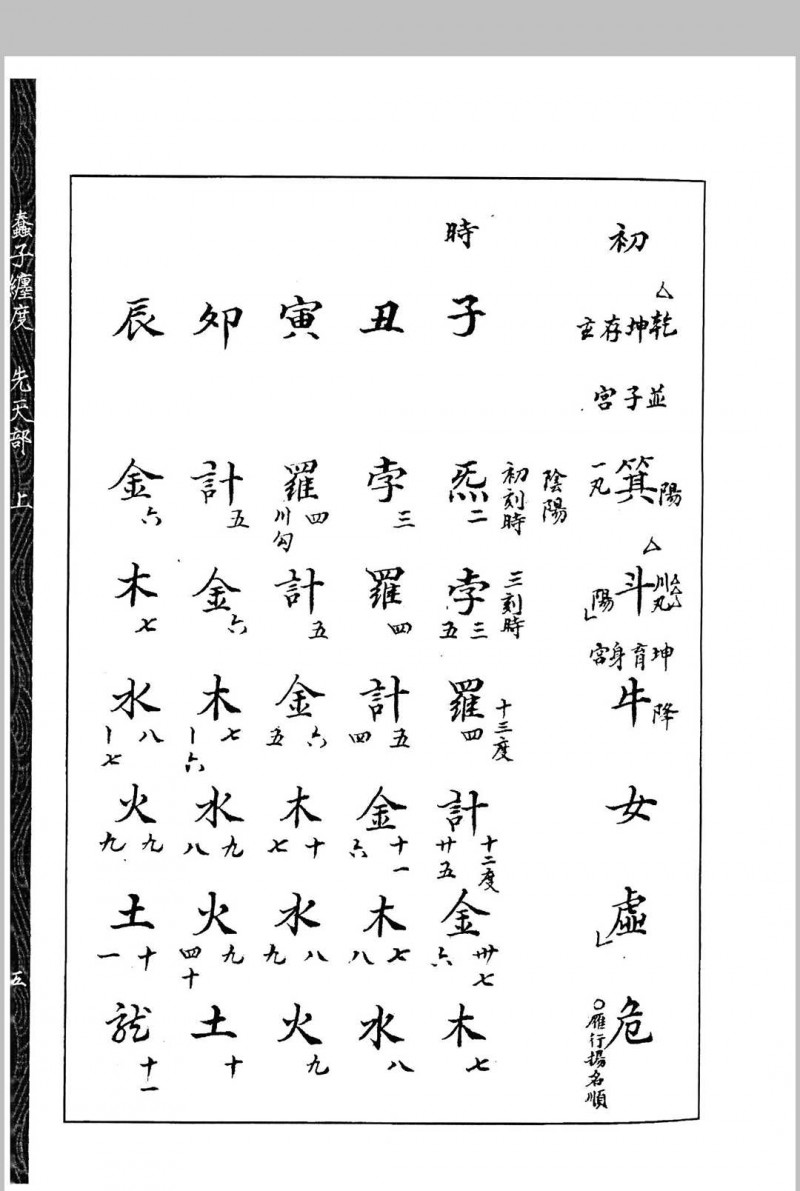 初
△
乾坤存主
並子宮
陽
箕
一丸
△
川丸
斗
陽
坤育身宮
降
牛
女
虛
危
○雁行揚名順
陰陽
時
子
初刻時
炁
二
三刻時
孛
三
五
十三度
羅
四
十二度
計
廿五
金
卅七
六
木
七
丑
孛
三
羅
四
計
五
四
金
十一
六
木
七
八
水
八
寅
羅
四
川勾
計
五
金
六
五
木
十
七
水
八
九
火
九
卯
計
五
金
六
木
七
丨六
水
九
八
火
九
四十
土
十
辰
金
六
木
七
水
八
丨七
火
九
九
土
十
一
龍
十一
蠢子纏度 先天部 上
五